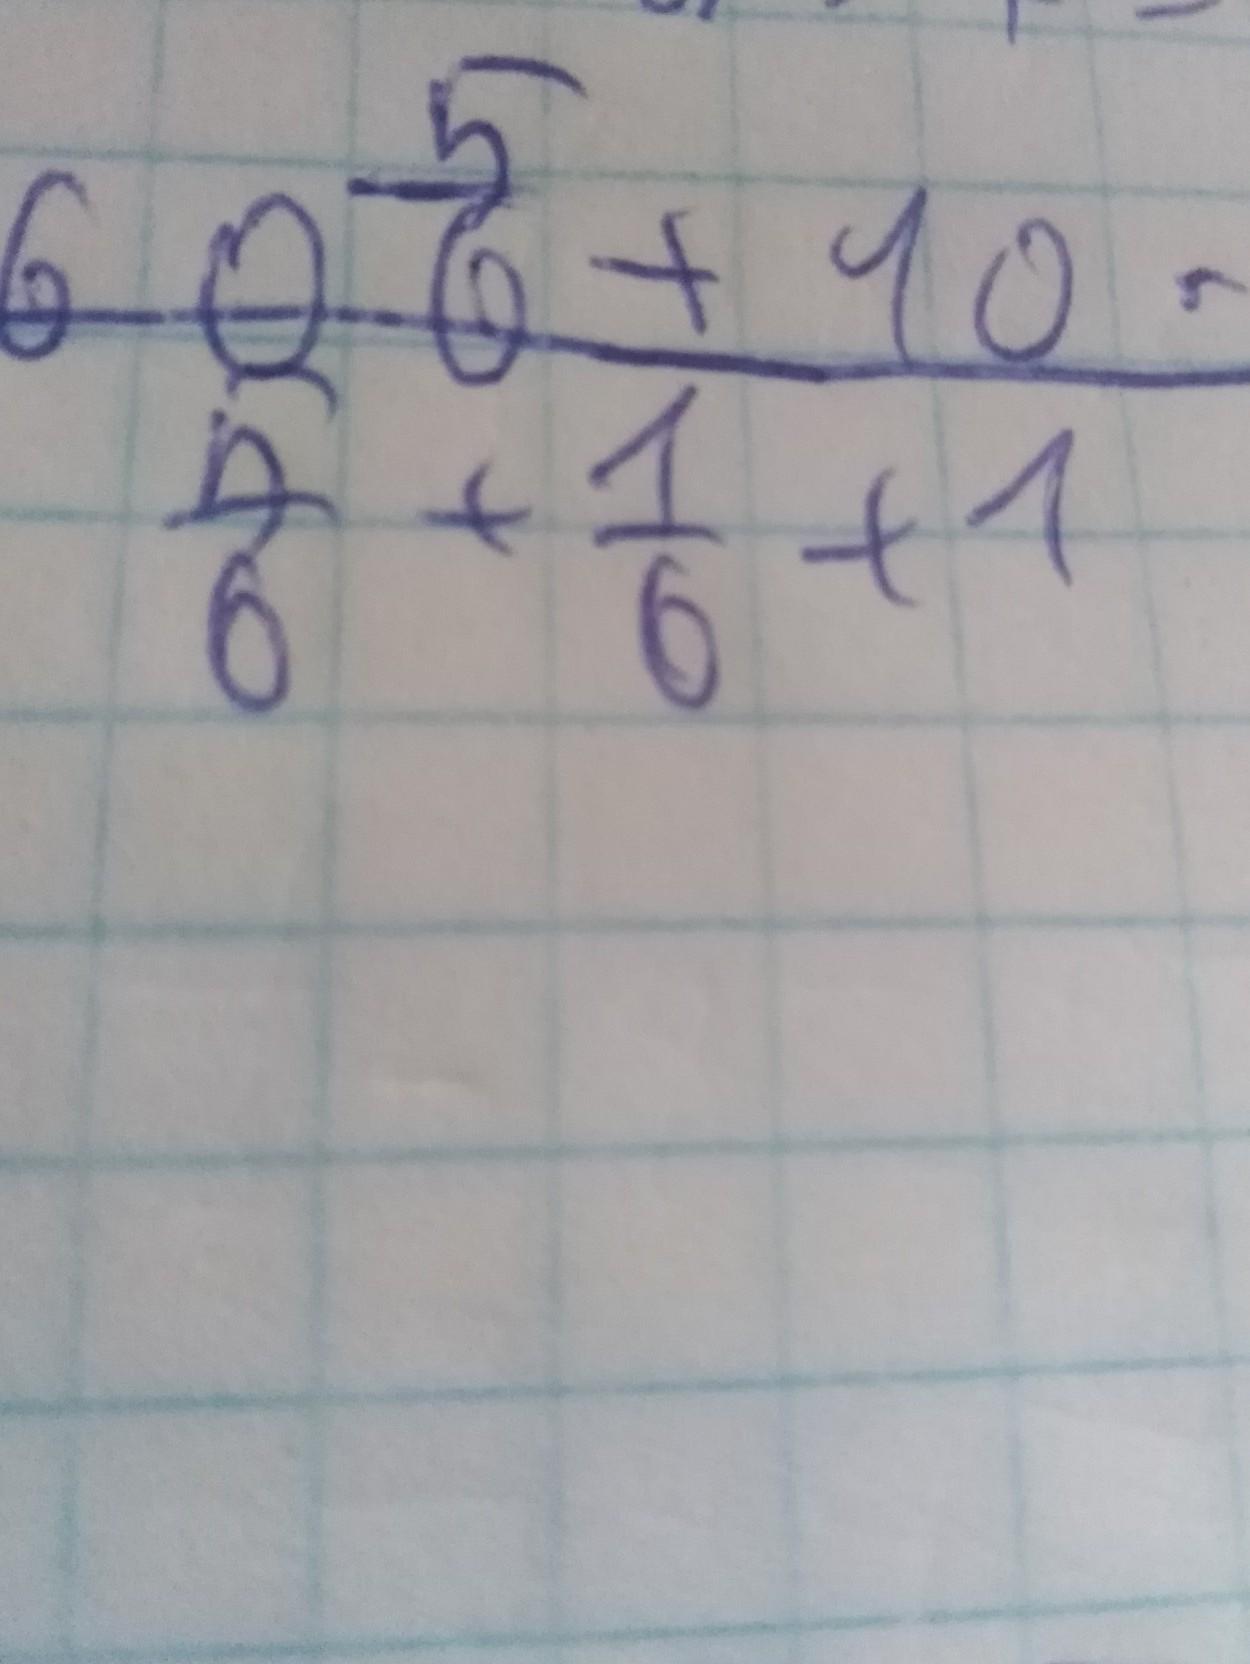 60 5/6 + 10 -
5/6 + 1/6 + 1